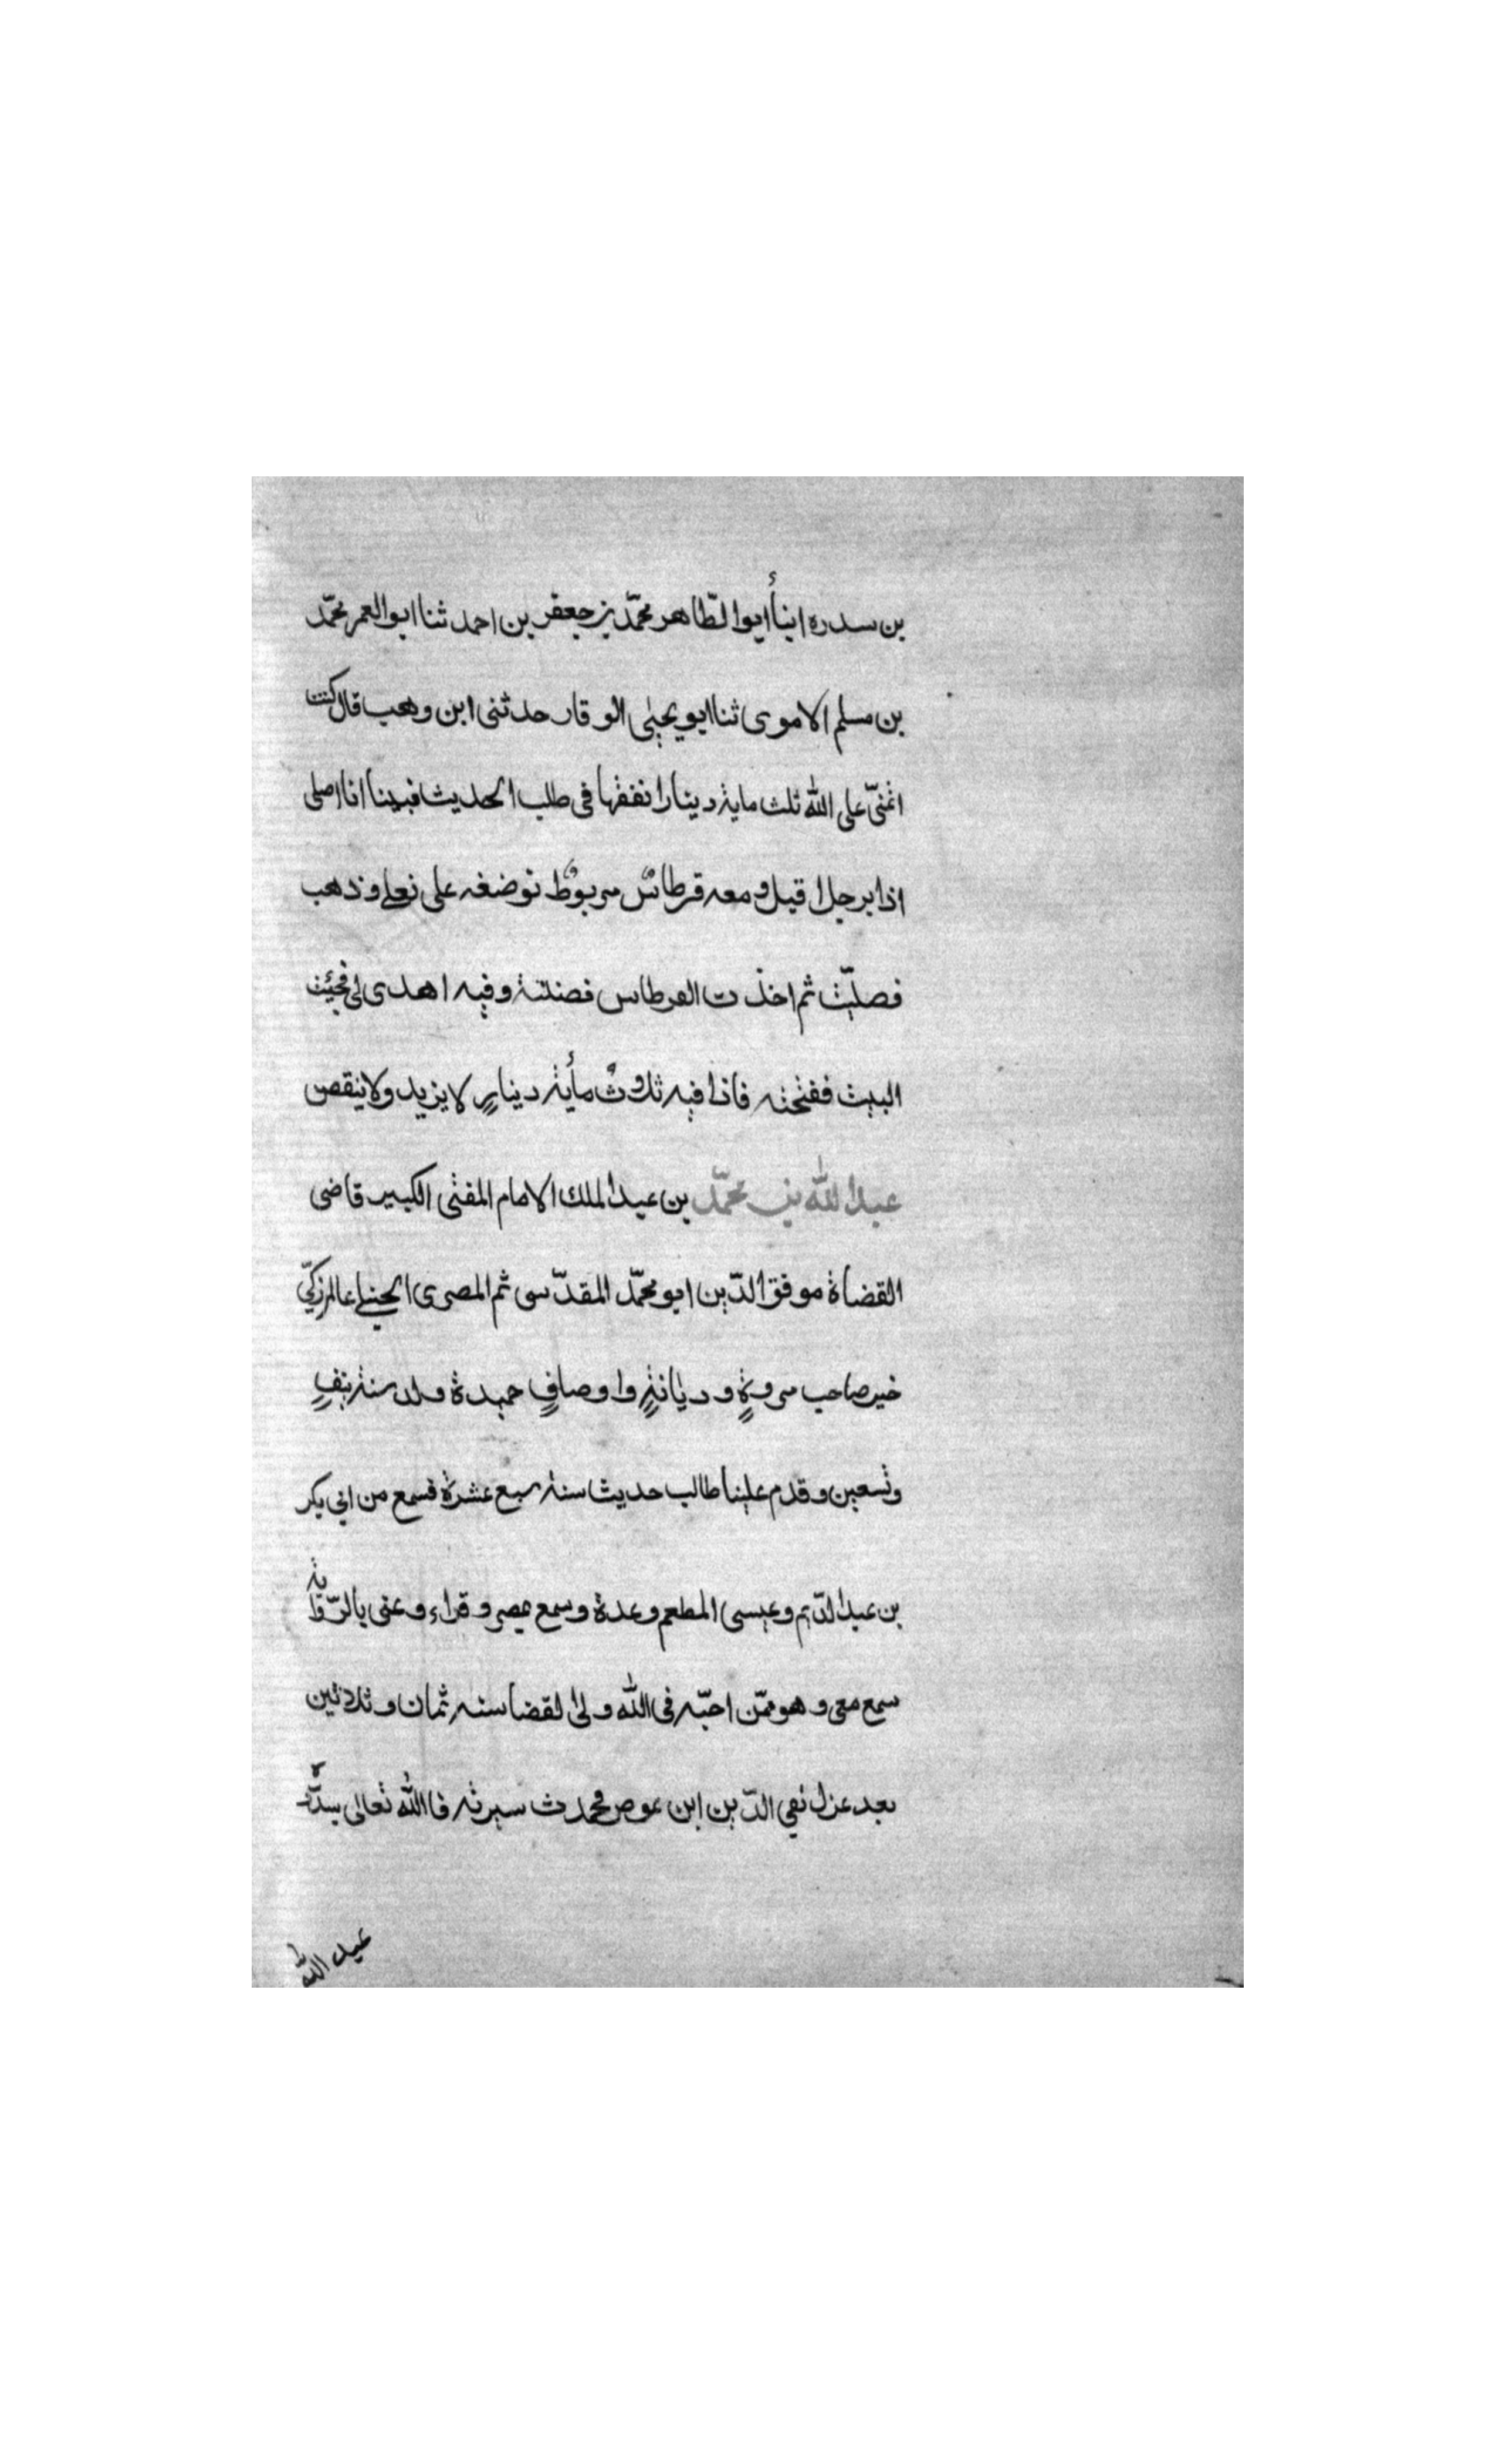 بن سدره انبأ ابوا لطّاهر محمّد بن جعفر بن احمد ثنا ابوا لعمر محمّد
بن مسلم الاموى ثنا ابو يحيى الوقار حدثنى ابن وهب قال كنت
اتمنىّ على الله ثلث ماية دينارا نفقها فى طلب الحديث فبينا انا اصلى
اذا برجل اقبل ومعه قرطاسٌ مربوطٌ نوضغه على نعلى وذهب
فصليّت ثم اخذت القرطاس وفيه اهدى لى فجيئت
البيت ففتحته فاذا فيه ثلاوثُ مأية دينارٍ لا يزيد ولا ينقص
عبدا لله بن محمّد بن عبدا لملك الامام المفتى الكبير قاضى
القضاة موفق الدّين ابو محمّد المقدّسى ثم المصرى الحنبلى عالم زكىّ
خير صاحب مروةٍ وديانةٍ وا وصافٍ حميدة ولد سنة نيفٍ
وتسعين وقدم علينا طالب حديث سنة سبع عشرة فسمع من ابى بكر
بن عبدا لدّيم وعيسى المطعم وعدة وسمع بمصر وقراء وعنى بالرّواية
سمع معى وهو ممّن احبّه فى الله ولى القضا سنه ثمان وثلاثين
بعد عزل تقي الدّين ابن عوص محمدت سيرته فا الله تعالى يسدّده
عبد الله